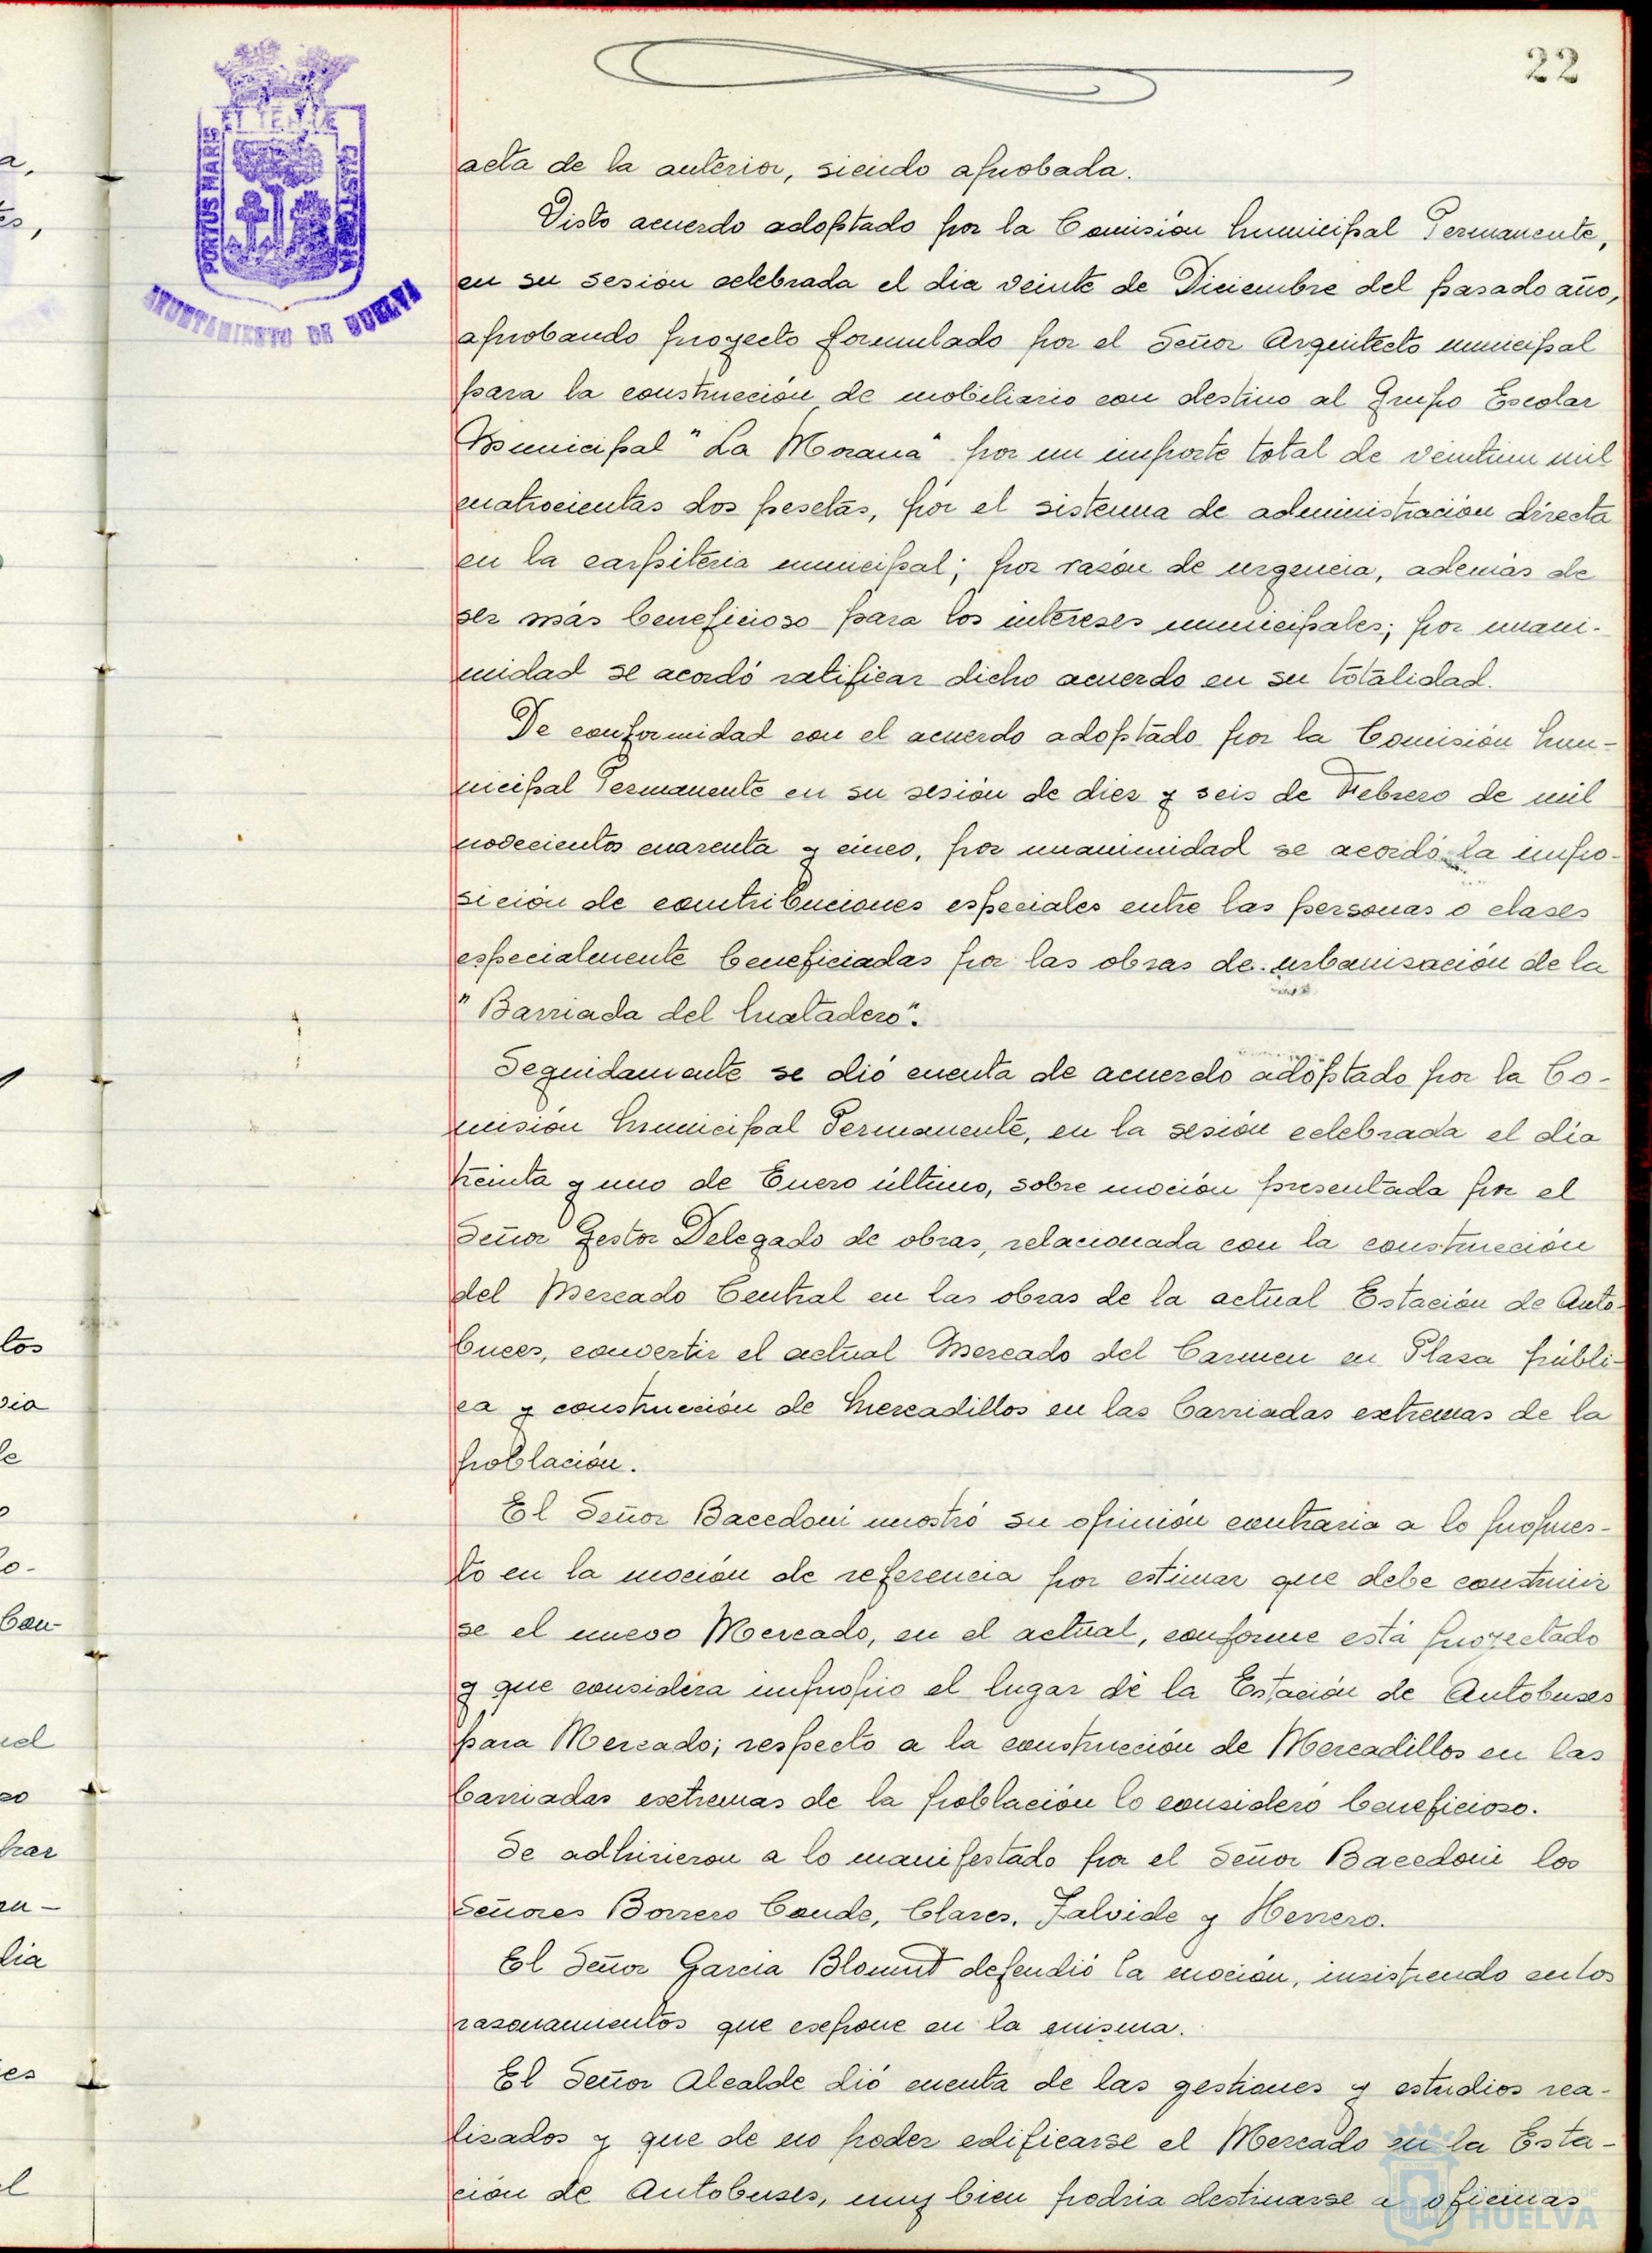 22
PORTUS MARIS
ET TERRE
CUSTODIA
AYUNTAMIENTO DE HUELVA
acta de la anterior, siendo aprobada.
Visto acuerdo adoptado por la Comisión Municipal Permanente,
en su sesión celebrada el dia veinte de Diciembre del pasado año,
aprobando proyecto formulado por el Señor Arquitecto municipal
para la construcción de mobiliario con destino al Grupo Escolar
Municipal "La Morana" por un importe total de veintiun mil
cuatrocientas dos pesetas, por el sistema de administración directa
en la carpiteria municipal; por razón de urgencia, además de
ser más beneficioso para los intereses municipales; por unani-
midad se acordó ratificar dicho acuerdo en su totalidad.
De conformidad con el acuerdo adoptado por la Comisión Mu-
nicipal Permanente en su sesión de diez y seis de Febrero de mil
novecientos cuarenta y cinco, por unanimidad se acordó la impo-
sición de contribuciones especiales entre las personas o clases
especialmente beneficiadas por las obras de urbanización de la
"Barriada del Matadero".
Seguidamente se dió cuenta de acuerdo adoptado por la Co-
misión Municipal Permanente, en la sesión celebrada el día
treinta y uno de Enero último, sobre moción presentada por el
Señor Gestor Delegado de obras, relacionada con la construcción
del Mercado Central en las obras de la actual Estación de Auto-
buces, convertir el actual Mercado del Carmen en Plaza públi-
ca y construcción de Mercadillos en las barriadas extremas de la
población.
El Señor Bacedoni mostró su opinión contraria a lo propues-
to en la moción de referencia por estimar que debe construir
se el nuevo Mercado, en el actual, conforme está proyectado
y que considera impropio el lugar de la Estación de Autobuses
para Mercado; respecto a la construcción de Mercadillos en las
barriadas extremas de la población lo consideró beneficioso.
Se adhirieron a lo manifestado por el Señor Bacedoni los
Señores Borrero Conde, Clares, Jalvide y Herrero.
El Señor Garcia Blount defendió la moción, insistiendo en los
razonamientos que expone en la misma.
El Señor Alcalde dió cuenta de las gestiones y estudios rea-
lizados y que de no poder edificarse el Mercado en la Esta-
ción de Autobuses, muy bien podria destinarse a oficinas
Ayuntamiento de
HUELVA